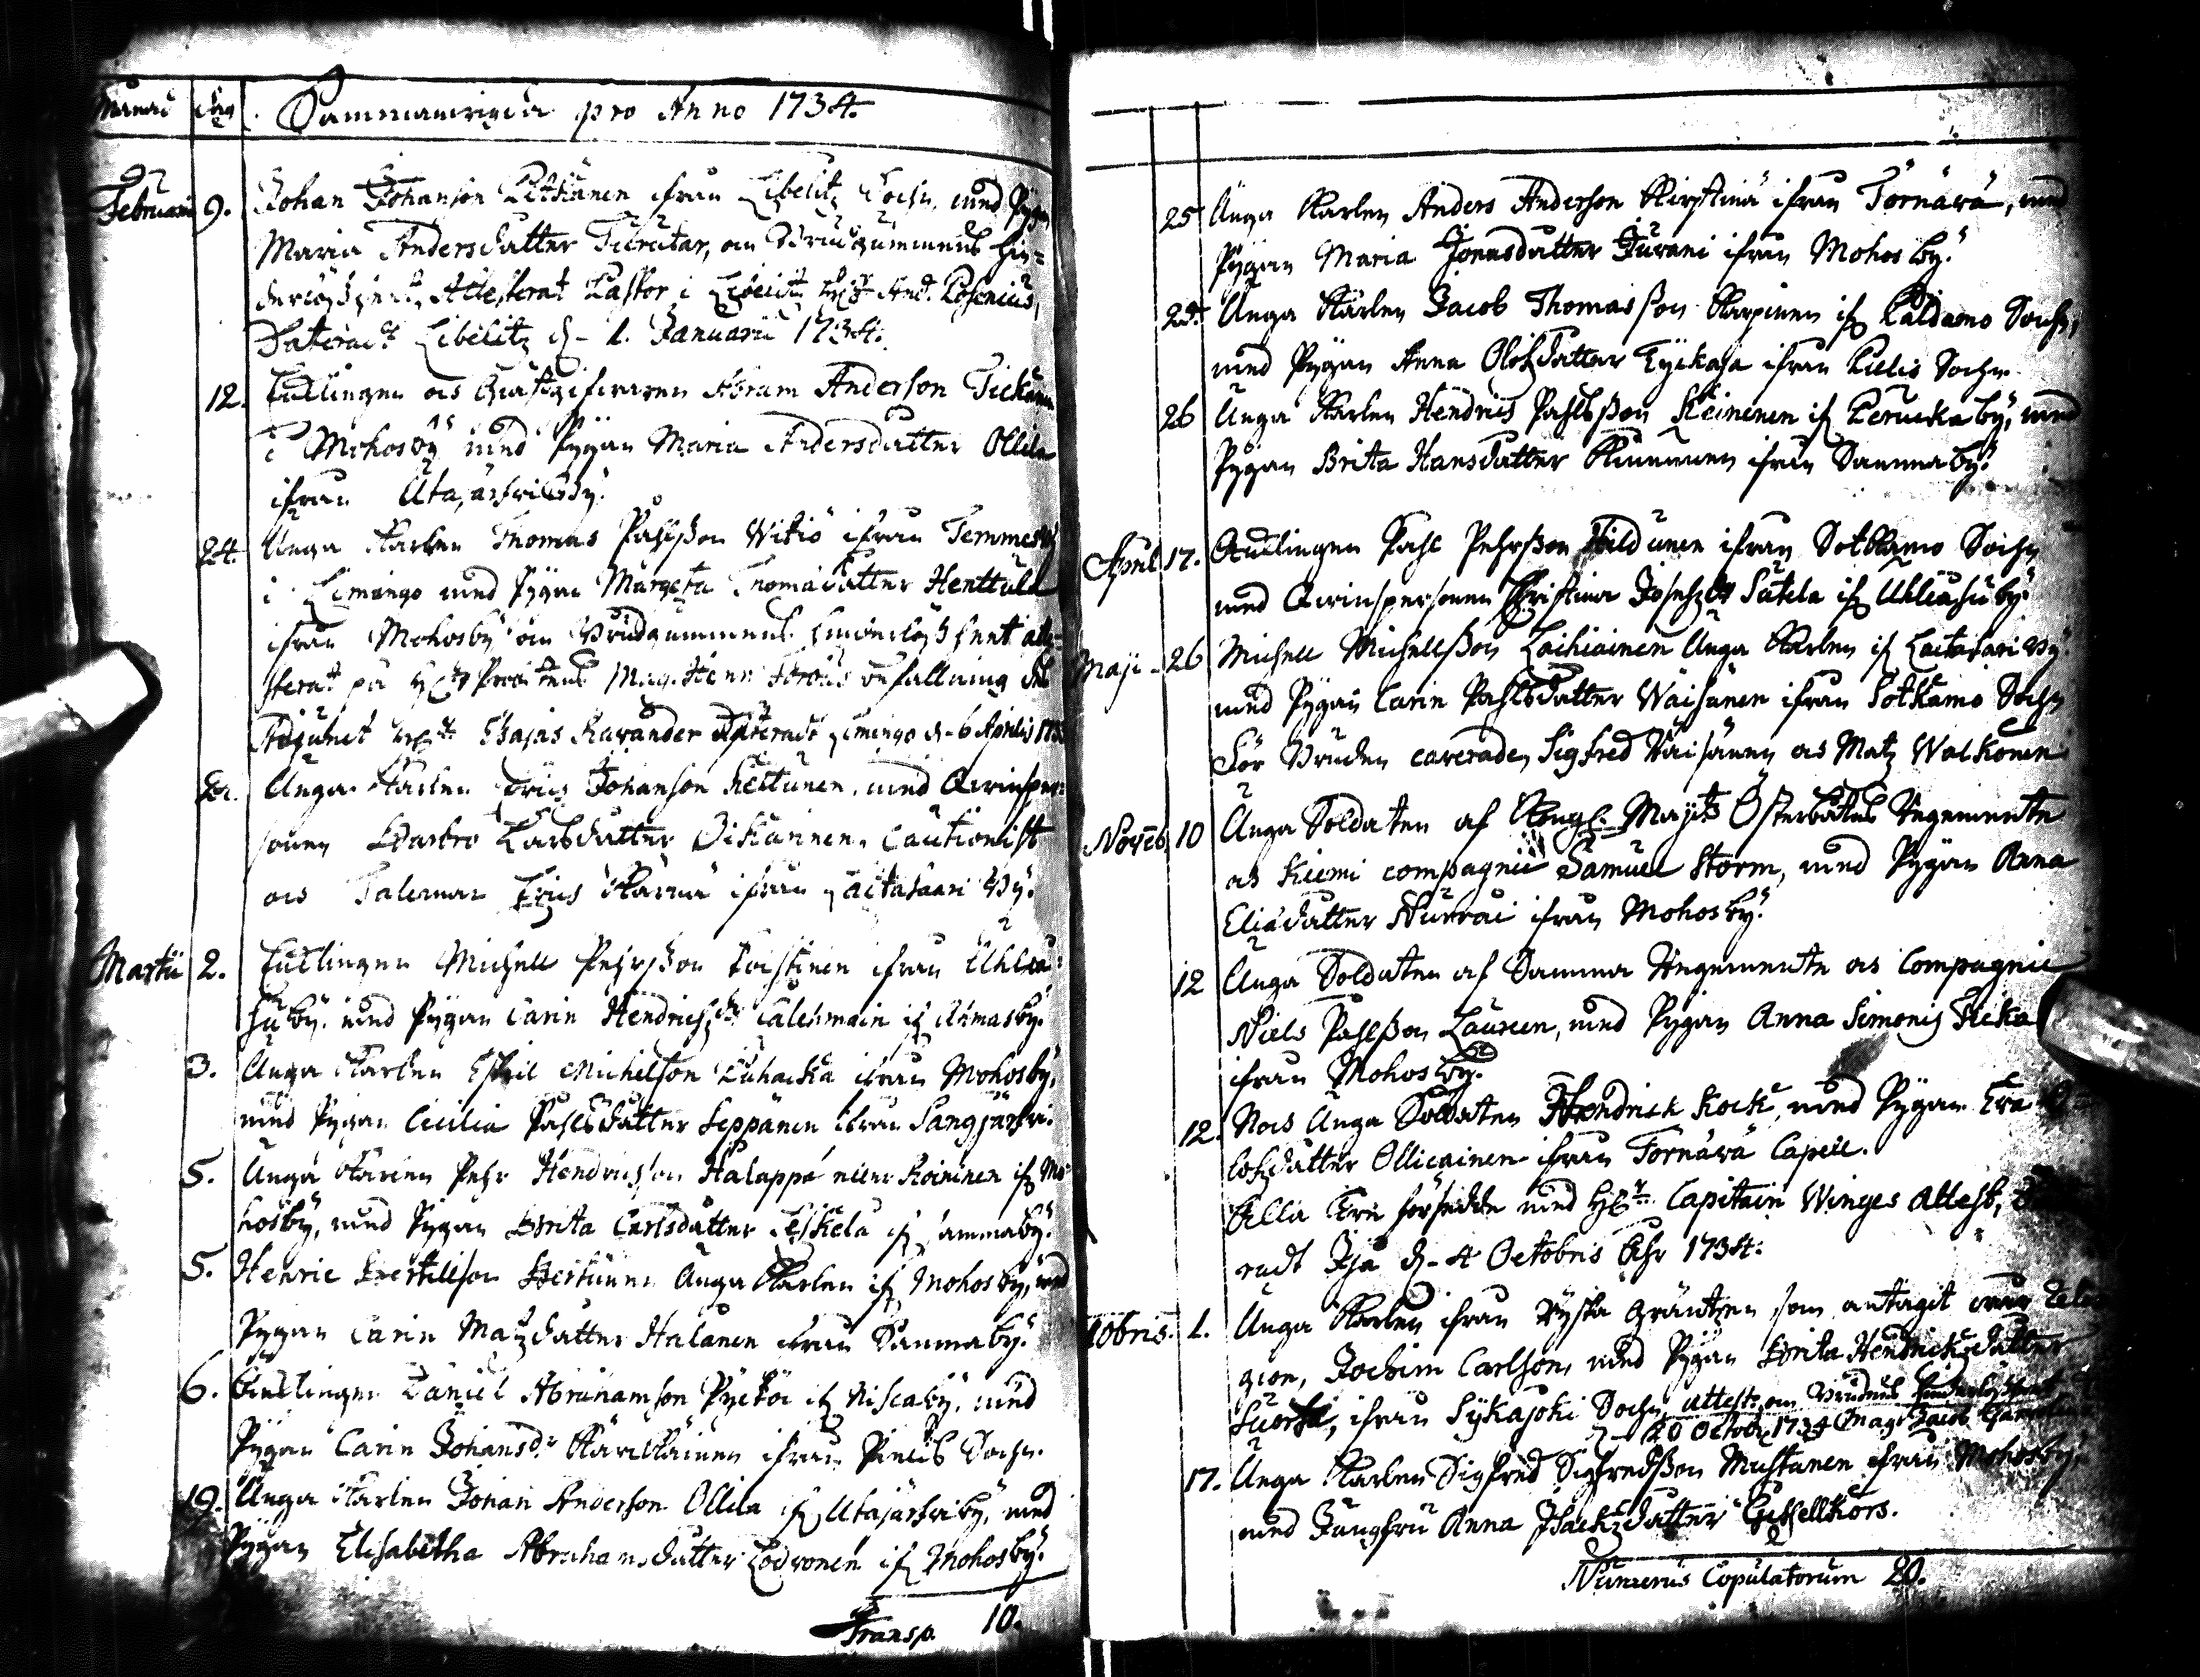 Månad Dag Sammanwigda pro Anno 1734.
Februarii 9. Johan Johanson Pitkänen ifrån Libelitz Sochn, med Pygan
Maria Andersdatter Turutar, om Brudgummens hin=
derlösheet, Attesterat Pastor i Libelitz And. Poscenius,
Dateradt Libelitz d. 1. Januarii 1734.
12. Enklingen Abram Anderson Tickanen
i Mohosby med Pygan Maria Andersdatter Ollila
ifrån Utajärfwiby.
24. Unga Karlen Thomas Påhlsson Witiö ifrån Temmes
i Limingo med Pygan Margeta Thomædatter Henttula
ifrån Mohosby om Brudgummens hinderlösheet atte=
sterat på Prostens Mag. Henr. befallning
Adjunct Esajas Kawander Dateradt Limingo d. 6 Aprilis
Unga Karlen Eric Johanson Keltunen, med Qwinsper=
sonen Larsdatter Oikarinen, Cautionist
Eric Kärnä ifrån Laitasaari By.
Martii 2. Enklingen Michell Pehrsson Toistinen ifrån Uhlea=
by med Pygan Carin Hendrichsdr if Ahmasby.
3. Unga Karlen Eskil Michelson ifrån Mohosby,
med Pygan Cecilia Påhlsdatter Seppänen ifrån Sangjärfwi.
5. Unga Karlen Pehr Hendrichson Halappá eller Koininen if Mo=
hosby, med Pygan Brita Carlsdatter Leskelä if Sammaby.
5. Henric Bertillson Keltunen Unga Karlen if Mohosby, med
Pygan Carin Matzdatter Halanen ifrån Sammaby.
6. Enklingen Daniel Abrahamson Pycköi if Niscaby, med
Pygan Carin Johansdr Kärkkäinen ifrån Pielis Sochn.
19. Unga Karlen Johan Anderson Ollila if Utajärfwiby, med
Pygan Elisabetha Abrahamsdatter Lodronen if Mohosby.
Transp. 10.
25 Unga Karlen Anders Anderson Kirstinä ifrån Törnäwä, med
Pygan Maria Jonasdatter Jurani ifrån Mohosby.
Unga Karlen Jacob Thomasson Karpinen if Paldamo Sochn,
med Pygan Anna Olofsdatter Tyckäjä ifrån Pielis Sochn
26 Unga Karlen Hendrich Påhlsson Heinonen if by, med
Pygan Brita Hansdatter Kinnunen ifrån Sammaby.
April 17. Enklingen Påhl Pehrsson Hildunen ifrån Sotkamo Sochn
med Qwinspersonen Christina Josephzdr Sutela if Uhleåsuby.
Maji 26 Michell Michellsson Laihiainen Unga Karlen if Laitasari By.
med Pygan Carin Påhlsdatter Wäisänen ifrån Sotkamo Sochn
För Bruden caverade, Sigfred Wäisänen Matz Walkonen
Novemb 10 Unga Soldaten af Kongl. Mayts Österbotns Regemente
Kiemi compagnie Samuel Storm, med Pygan Anna
Eliædatter Hurrai ifrån Mohosby.
12 Unga Soldaten af Samma Regemente Compagnie
Niels Påhlsson Laureen, med Pygan Anna Simonis Ticka
ifrån Mohosby.
12. Unga Soldaten Hendrich Kock, med Pygan Eva
lofzdatter Ollicainen ifrån Tornäwä Capell.
Alla Tre försedde med Capitain Winges Attest,
radt Ijå d. 4 Octobris Åhr 1734.
10bris. 1. Unga Karlen ifrån Ryska Gräntzen som antagit wår Reli
gion, Jochim Carlson, med Pygan Brita Hendrichsdatter
Luosta, ifrån Sykajoki Sochn, attest: om Brudens hinderlösheet
d. 20 Octobr 1734 Mag. Jacob
17. Unga Karlen Sigfred Sigfredsson Mustanen ifrån Mohosby,
med Jungfru Anna Isackzdatter Gissellkors.
Numerus Copulatorum 20.